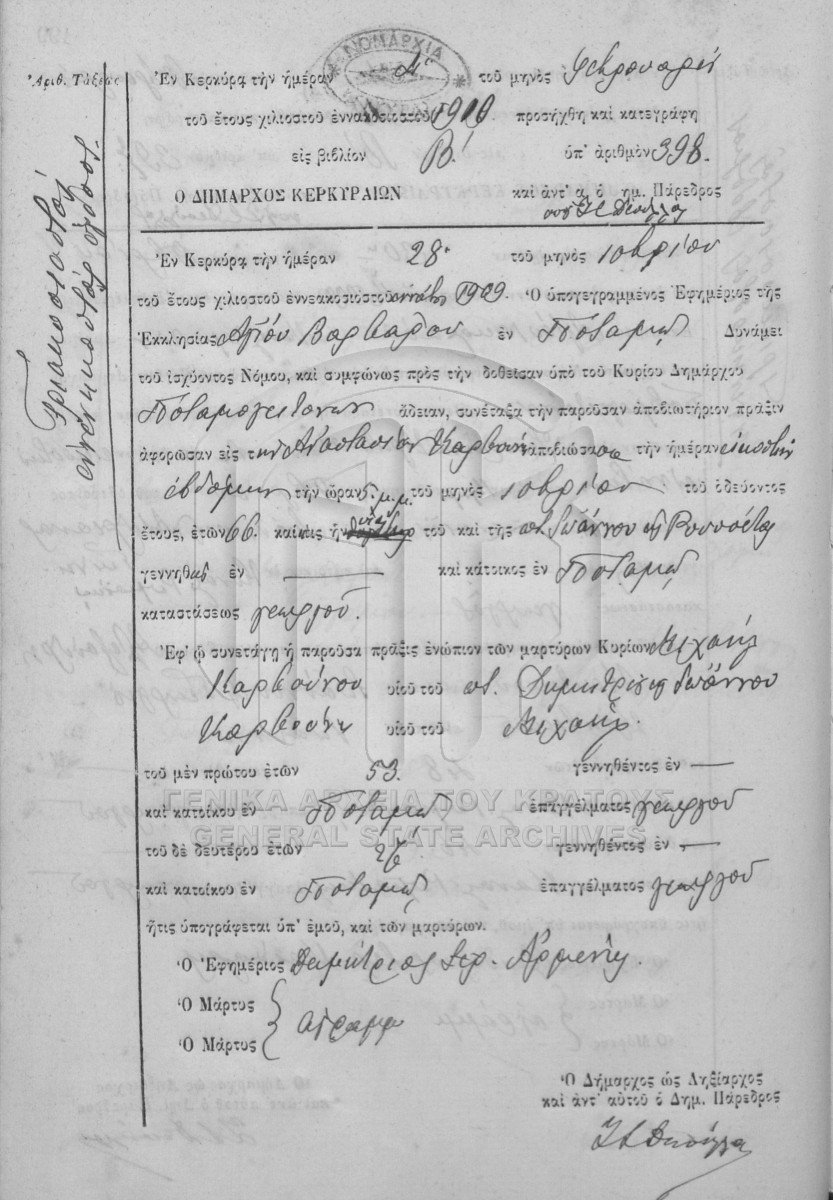 ΝΟΜΑΡΧΙΑ
Ἀριθ. Τάξεως
Τριακοσιοστὸς
ἐννενηκοστὸς ὄγδοος.
Ἐν Κερκύρᾳ τὴν ἡμέραν τοῦ μηνὸς Φεβρουαρίου
τοῦ ἔτους χιλιοστοῦ ἐννακοσιοστοῦ 1910 προσήχθη καὶ κατεγράφη
εἰς βιβλίον Β' ὑπ' ἀριθμὸν 398.
Ο ΔΗΜΑΡΧΟΣ ΚΕΡΚΥΡΑΙΩΝ καὶ ἀντ' α. ὁ δημ. Πάρεδρος
Ἐν Κερκύρᾳ τὴν ἡμέραν 28ην τοῦ μηνὸς 10βρίου
τοῦ ἔτους χιλιοστοῦ ἐννεακοσιοστοῦ ἐννάτου 1909. Ὁ ὑπογεγραμμένος Ἐφημέριος τῆς
Ἐκκλησίας Ἁγίου Βαρβάρου ἐν Ποταμῷ Δυνάμει
τοῦ ἰσχύοντος Νόμου, καὶ συμφώνως πρὸς τὴν δοθεῖσαν ὑπὸ τοῦ Κυρίου Δημάρχου
Ποταμογειτόνων ἄδειαν, συνέταξα τὴν παροῦσαν ἀποβιωτήριον πρᾶξιν
ἀφορῶσαν εἰς τὴν Ἀναστασίαν Καρβούνη ἀποβιώσασα τὴν ἡμέραν εἰκοστὴν
ἑβδόμην τὴν ὥραν 5 μ.μ. τοῦ μηνὸς 10βρίου τοῦ ὁδεύοντος
ἔτους, ἐτῶν 66. καὶ ἥτις ἦν θυγάτηρ τοῦ καὶ τῆς ποτ. Ἰωάννου
γεννηθεῖσ ἐν — καὶ κάτοικος ἐν Ποταμῷ
καταστάσεως γεωργοῦ.
Ἐφ' ᾧ συνετάγη ἡ παροῦσα πρᾶξις ἐνώπιον τῶν μαρτύρων Κυρίων Μιχαὴλ
Καρβούνη υἱοῦ τοῦ ποτ. Δημητρίου καὶ Ἰωάννου
Καρβούνη υἱοῦ τοῦ Μιχαήλ.
τοῦ μὲν πρώτου ἐτῶν 53. γεννηθέντος ἐν —
καὶ κατοίκου ἐν Ποταμῷ ἐπαγγέλματος γεωργοῦ
τοῦ δὲ δευτέρου ἐτῶν γεννηθέντος ἐν —
καὶ κατοίκου ἐν Ποταμῷ ἐπαγγέλματος γεωργοῦ
ἥτις ὑπογράφεται ὑπ' ἐμοῦ, καὶ τῶν μαρτύρων.
Ὁ Ἐφημέριος Δημήτριος Ἱερ. Ἀρμένης.
Ὁ Μάρτυς
ἀγράμμ
Ὁ Μάρτυς
Ὁ Δήμαρχος ὡς Ληξίαρχος
καὶ ἀντ' αὐτοῦ ὁ Δημ. Πάρεδρος
ΓΕΝΙΚΑ ΑΡΧΕΙΑ ΤΟΥ ΚΡΑΤΟΥΣ
GENERAL STATE ARCHIVES